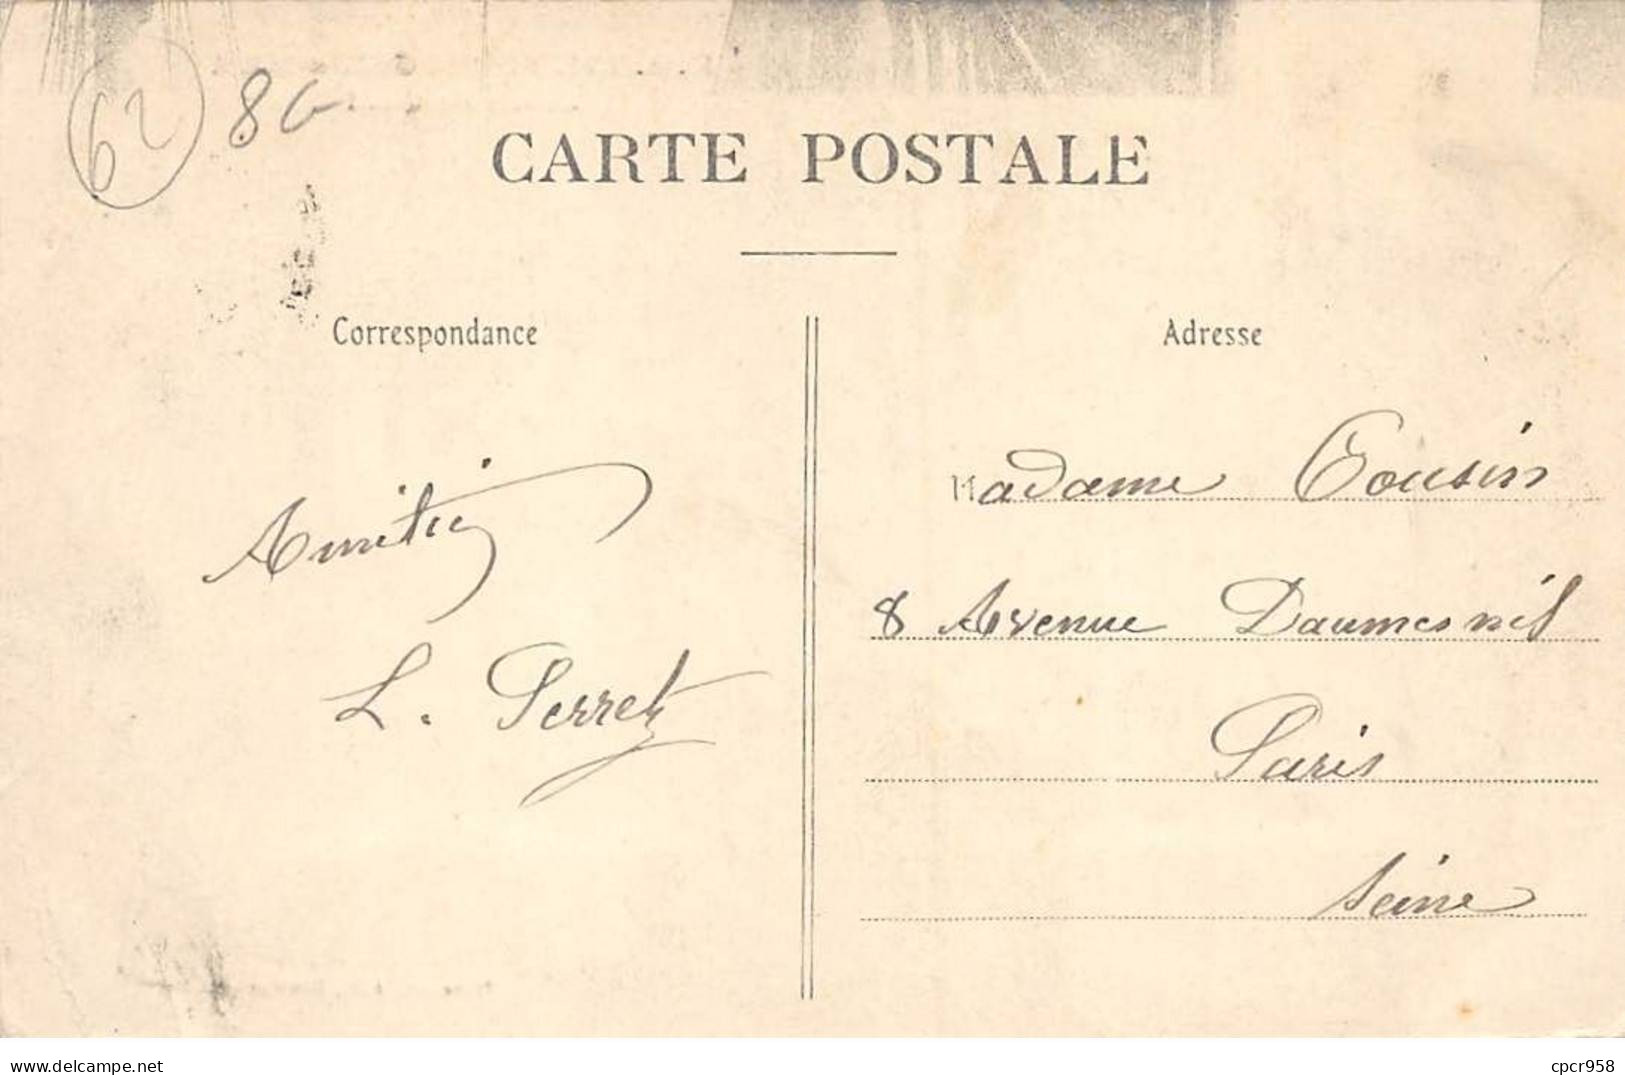 62
CARTE POSTALE
Correspondance
Adresse
Amitié
L. Perret
Madame Cousin
8 Avenue Daumesnil
Paris
Seine
www.delcampe.net
cpcr958